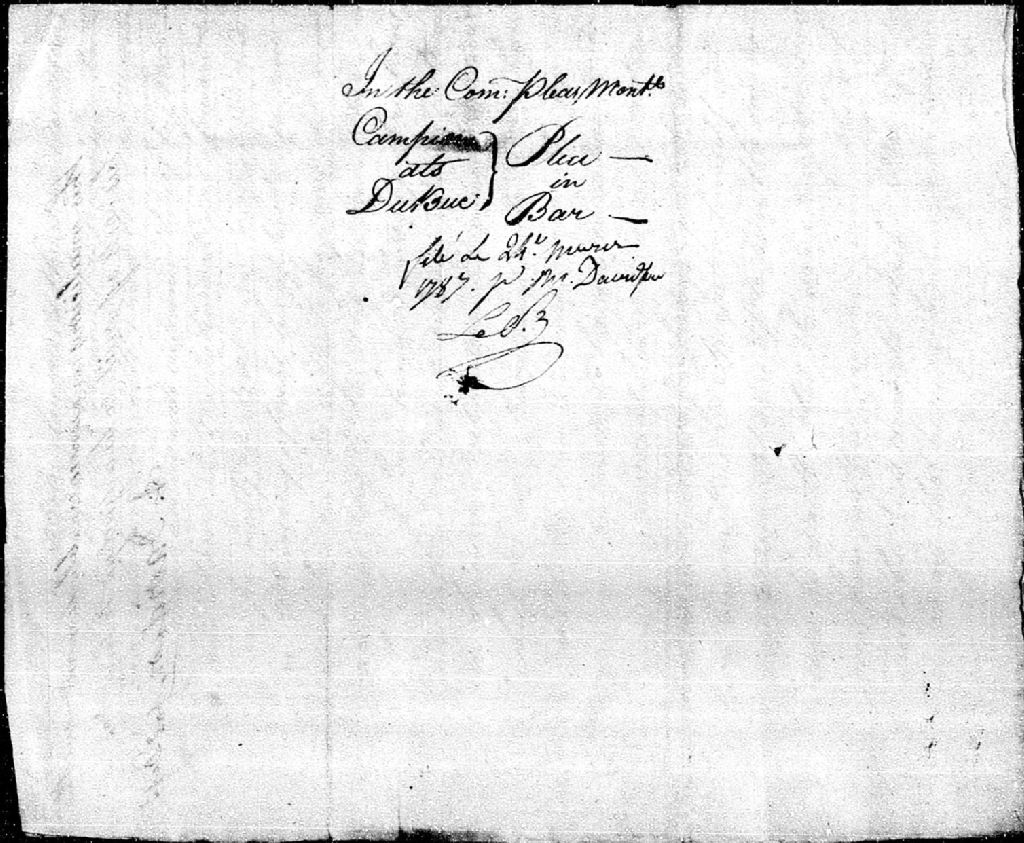 In the Com: Pleas, Mont.l
Campion
ats
DuBuc
} Plea —
in
Bar —
filé Le 24.e
1787. p Mr. Davidson
LeP.z